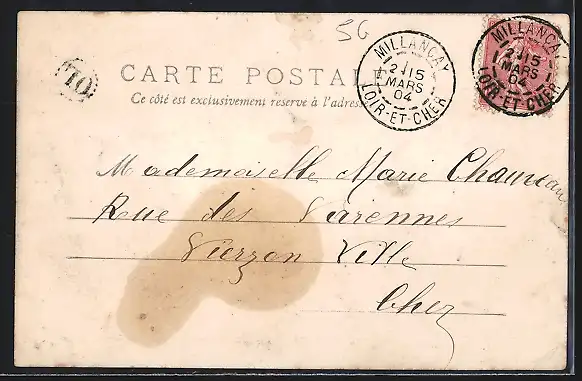 5G
MILLANÇAY
2E
15
MARS
04
LOIR-ET-CHER
MILLANÇAY
2E
15
MARS
04
LOIR-ET-CHER
OL
CARTE POSTALE
Ce côté est exclusivement réservé à l'adresse
Mademoiselle Marie
Rue des Varennes
Vierzon Ville
Cher